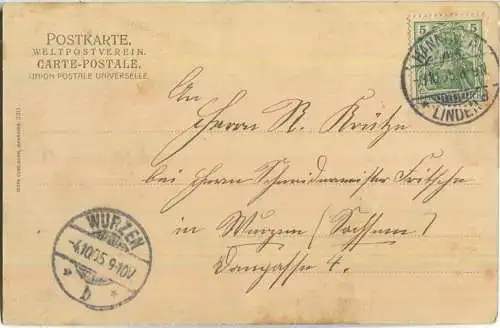 POSTKARTE.
WELTPOSTVEREIN.
CARTE-POSTALE.
UNION POSTALE UNIVERSELLE.
5 5
* LINDEN
An
Herrn R. Krütze
bei Herrn Schneidermeister Fritsche
in Wurzen (Sachsen)
Domgasse 4.
WURZEN
-4.10.05.9-10V
* b *